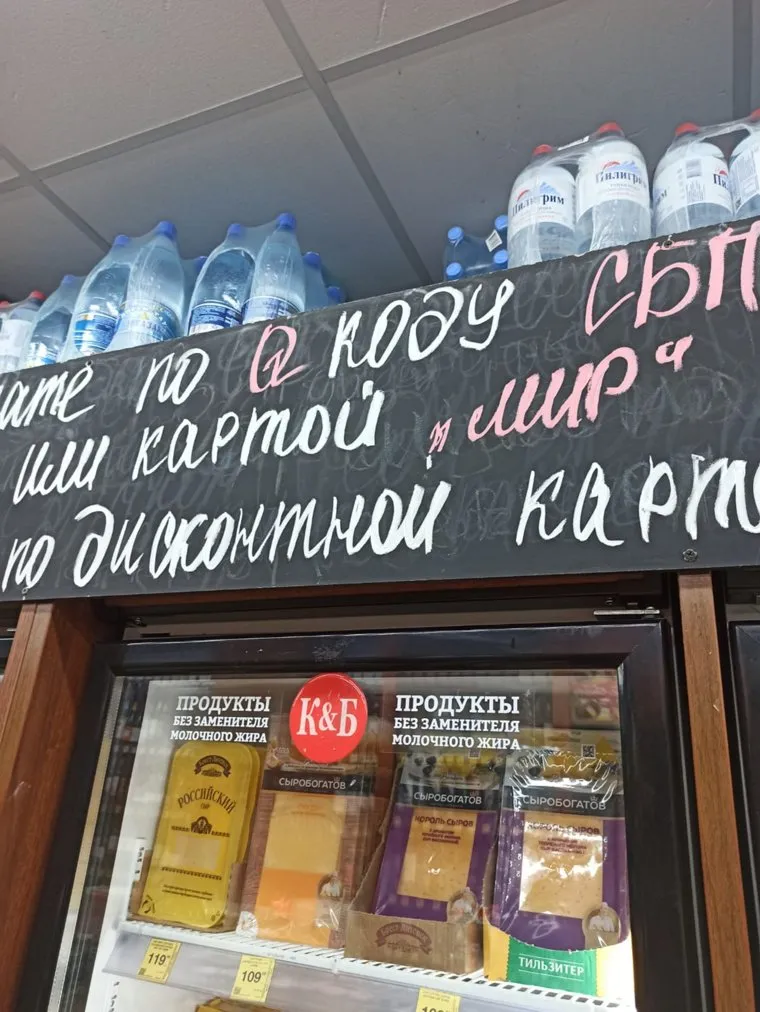 Пилигрим
Пилигрим
по Q коду СБП
или картой „мир“
по дисконтной карт
ПРОДУКТЫ
БЕЗ ЗАМЕНИТЕЛЯ
МОЛОЧНОГО ЖИРА
К&Б
ПРОДУКТЫ
БЕЗ ЗАМЕНИТЕЛЯ
МОЛОЧНОГО ЖИРА
РОССИЙСКИЙ
СЫРОБОГАТОВ
СЫРОБОГАТОВ
КОРОЛЬ СЫРОВ
СЫРОБОГАТОВ
КОРОЛЬ СЫРОВ
ТИЛЬЗИТЕР
119
109